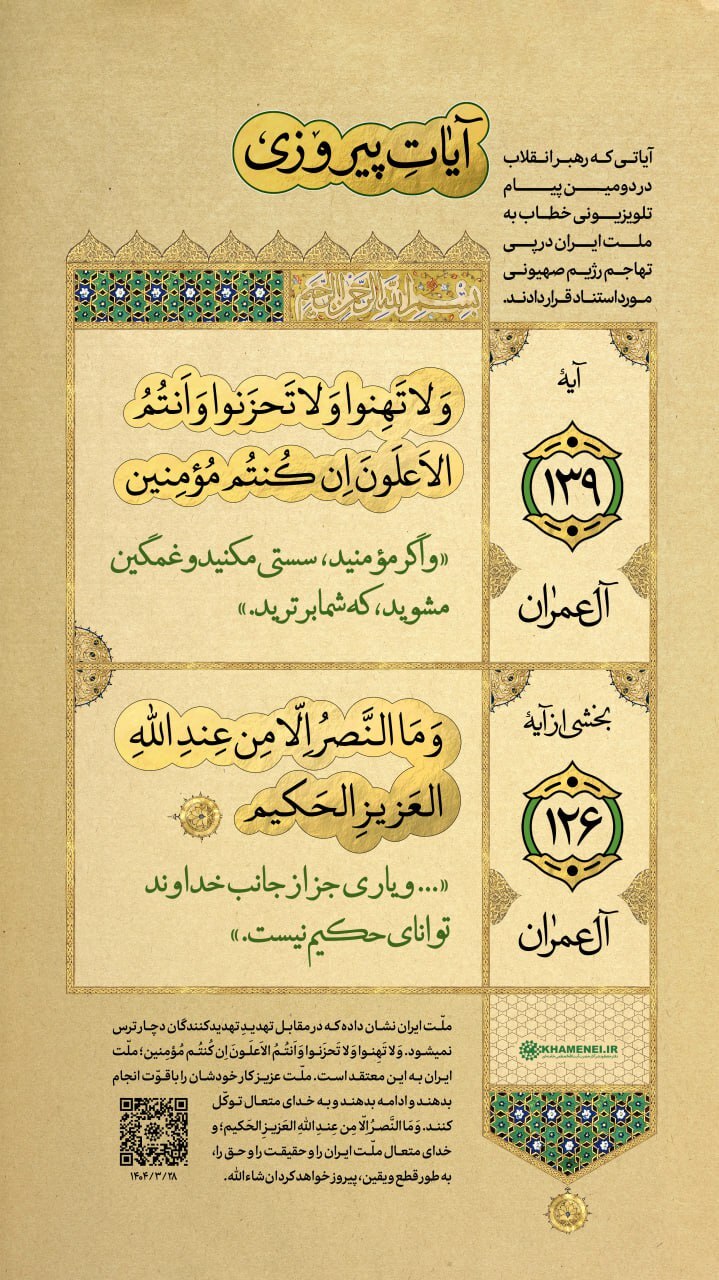 آیاتِ پیروزی
آیاتی که رهبر انقلاب
در دومین پیام
تلویزیونی خطاب به
ملت ایران در پی
تهاجم رژیم صهیونی
مورد استناد قرار دادند.
بِسْمِ اللهِ الرَّحْمٰنِ الرَّحیمِ
آیهٔ
۱۳۹
آل عمرٰان
وَلا تَهِنوا وَلا تَحزَنوا وَاَنتُمُ
الاَعلَونَ اِن کُنتُم مُؤمِنین
«و اگر مؤمنید، سستی مکنید و غمگین
مشوید، که شما برترید.»
بخشی از آیهٔ
۱۲۶
آل عمرٰان
وَمَا النَّصرُ اِلّا مِن عِندِ اللهِ
العَزیزِ الحَکیم
«... و یاری جز از جانب خداوند
توانای حکیم نیست.»
KHAMENEI.IR
ملّت ایران نشان داده که در مقابل تهدیدِ تهدیدکنندگان دچار ترس
نمیشود. وَلا تَهِنوا وَلا تَحزَنوا وَاَنتُمُ الاَعلَونَ اِن کُنتُم مُؤمِنین؛ ملّت
ایران به این معتقد است. ملّت عزیز کار خودشان را با قوّت انجام
بدهند و ادامه بدهند و به خدای متعال توکّل
کنند. وَمَا النَّصرُ اِلّا مِن عِندِ اللهِ العَزیزِ الحَکیم؛ و
خدای متعال ملّت ایران را و حقیقت را و حق را،
به طور قطع و یقین، پیروز خواهد کرد ان شاءالله.
۱۴۰۴/۳/۲۸